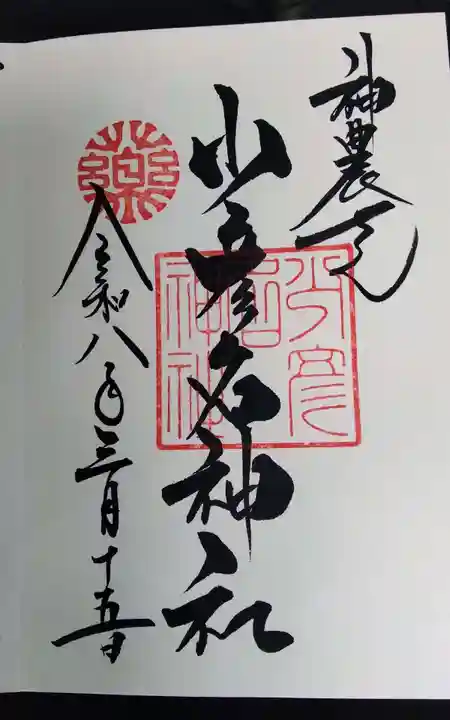 神農さん
少彦名神社
令和八年三月十五日
藥
少彦
名
神社